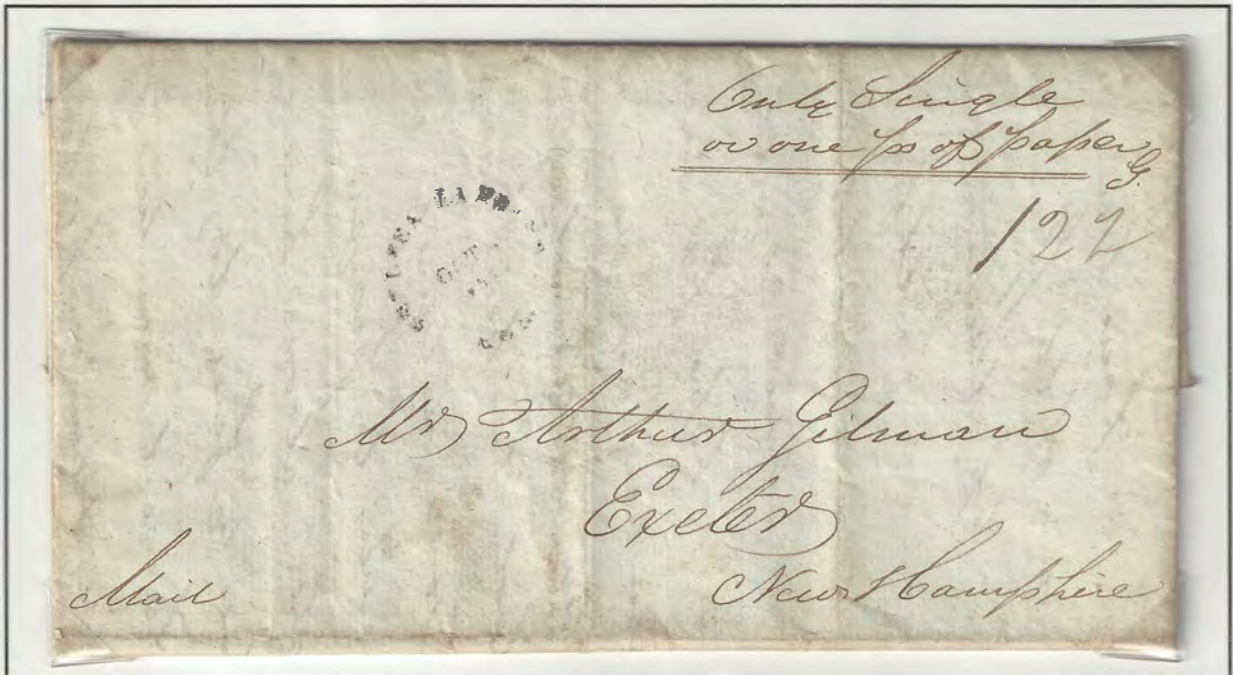 Only Single
or one ps of paper
G.
122
OCT
Mr Arthur Gilman
Exeter
New Hampshire
Mail